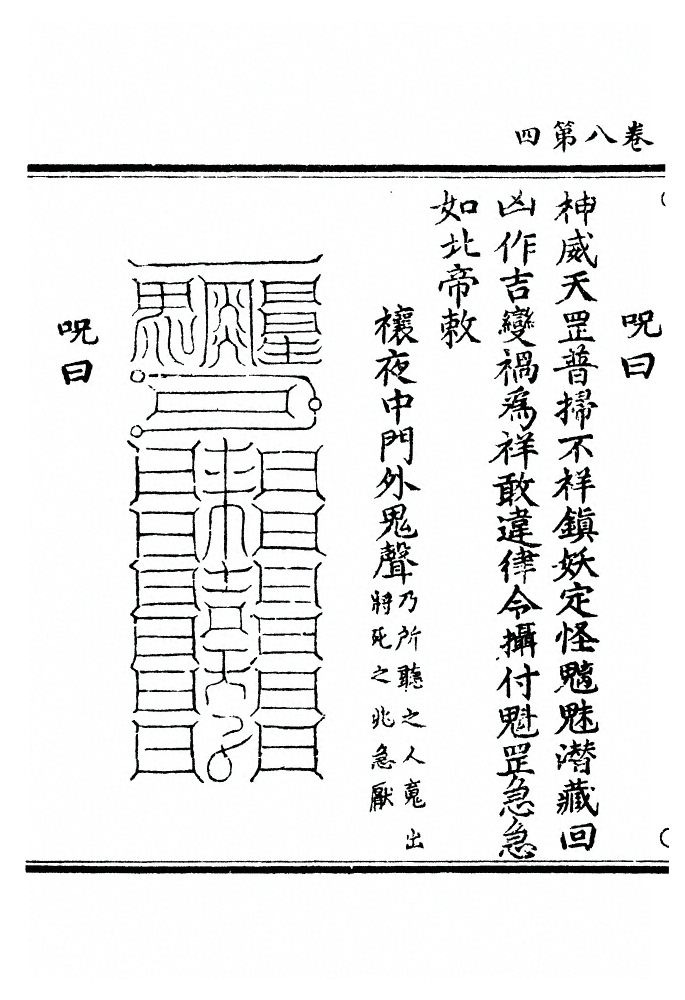 卷八第四
呪曰
神威天罡普掃不祥鎮妖定怪魑魅潜藏回
凶作吉變禍爲祥敢違律令攝付魁罡急急
如北帝敕
禳夜中門外鬼聲
乃所聽之人䰟出
將死之兆急厭
呪曰